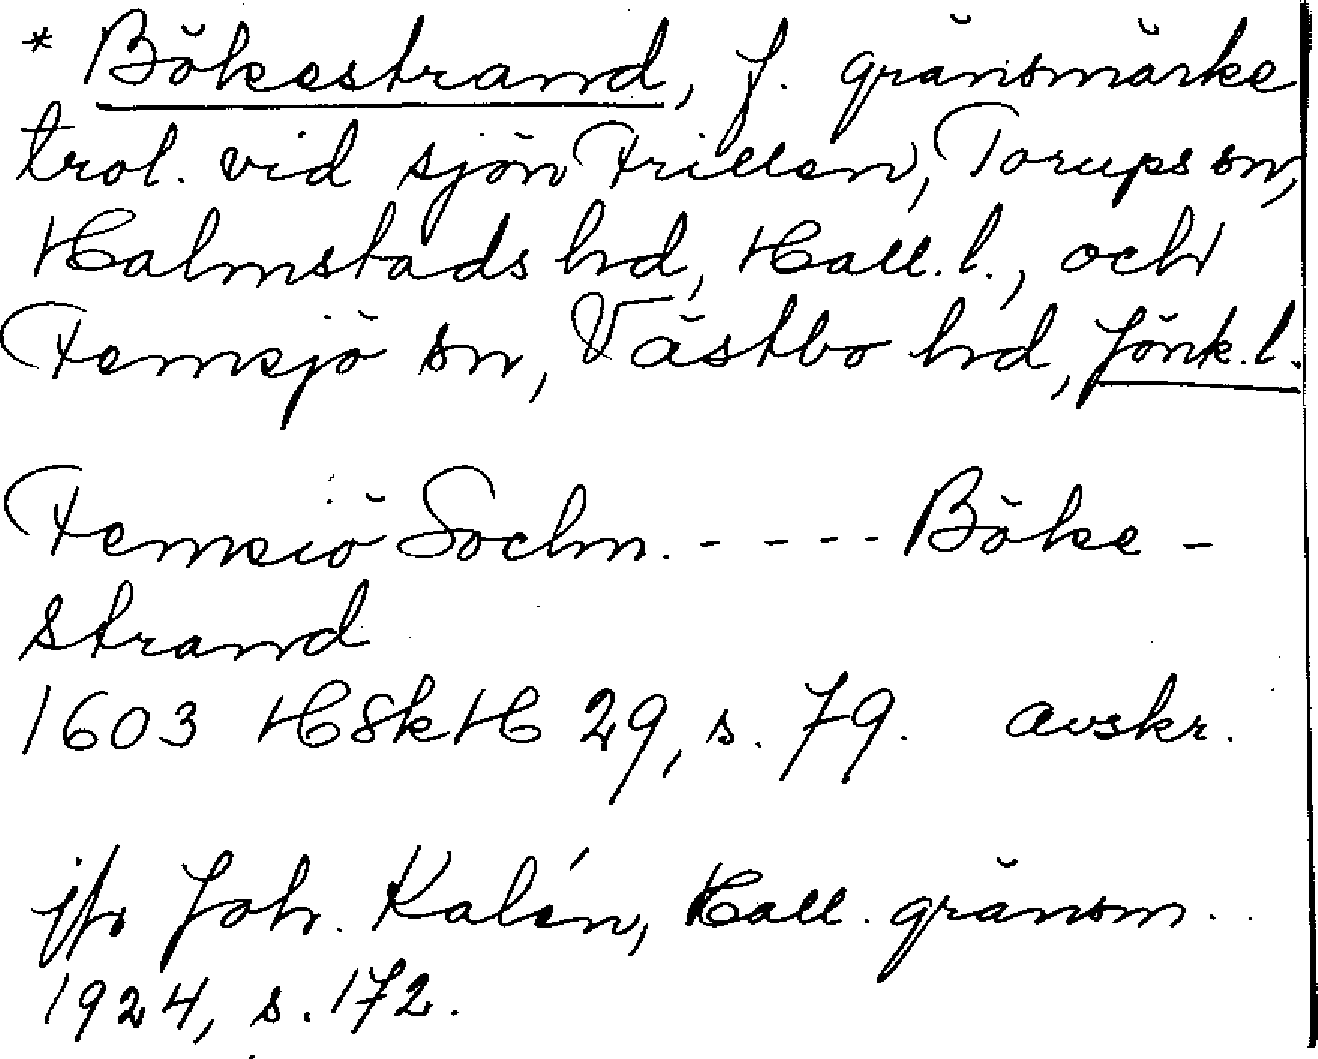 * Bökestrand, f. gränsmärke
trol. vid sjön Frillen, Torups sn,
Halmstads hd, Hall. l., och
Femsjö sn, Västbo hd, Jönk. l.
Femsiö Sochn. - - - - - Böke -
strand
1603 HSkH 29, s. 79. avskr.
jfr Joh. Kalén, Hall. gränsm..
1924, s. 172.